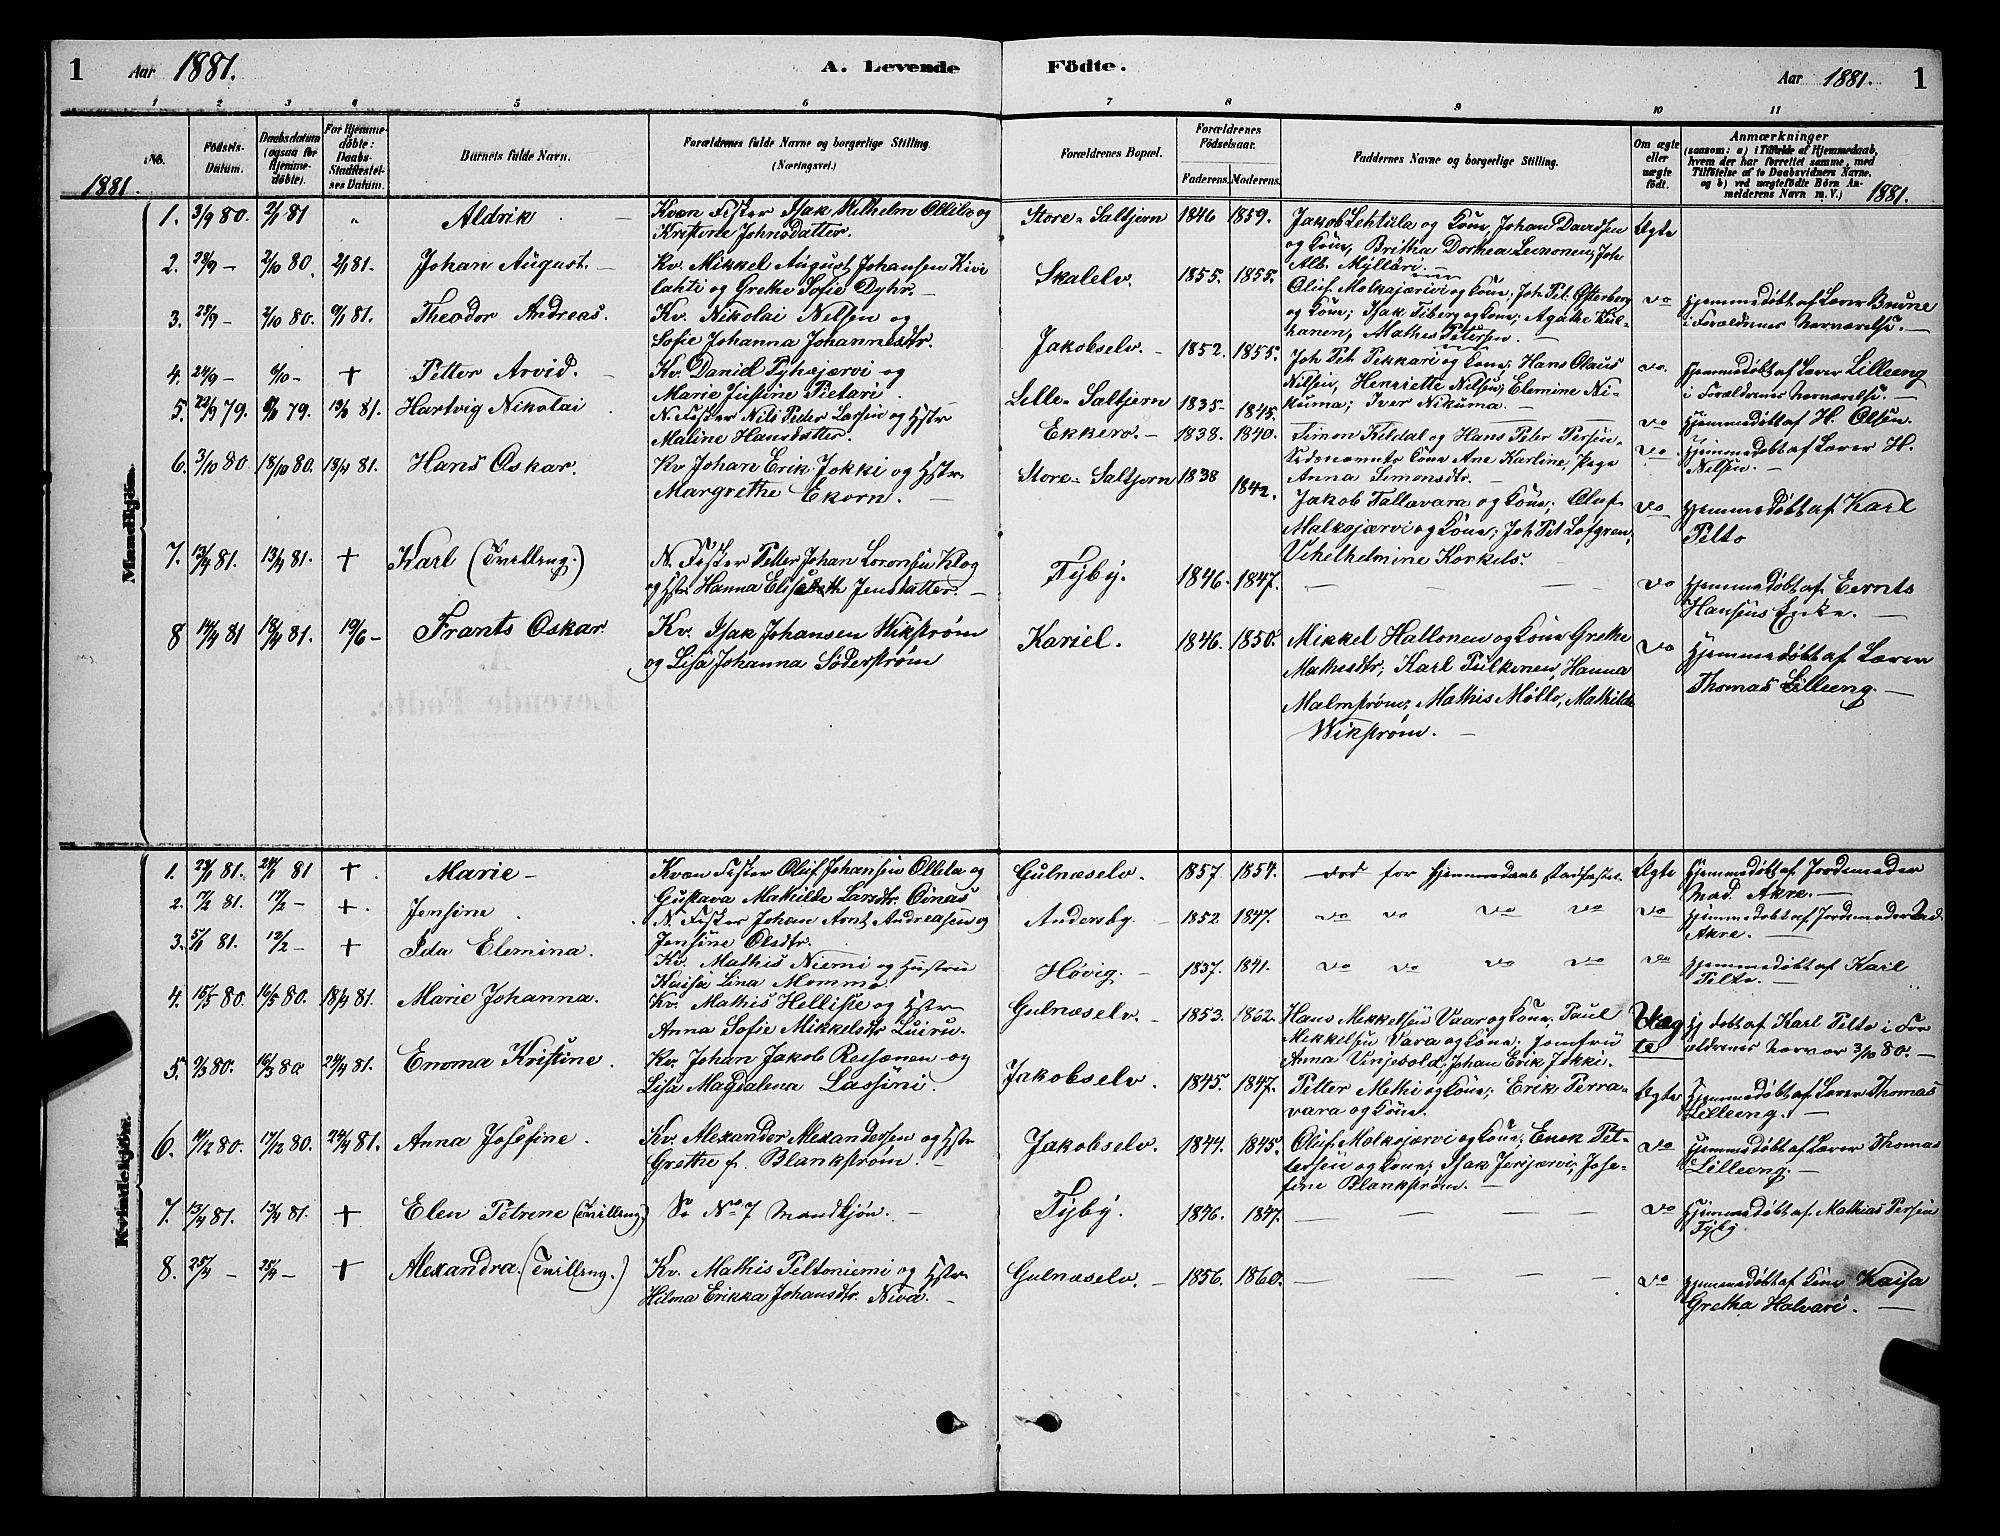 1 Aar 1881. A. Levende Födte. Aar 1881. 1
1 2 3 4 5 6 7 8 9 10 11
No. Födsels-Datum. Daabsdatum (ogsaa for Hjemmedöbte). For Hjemmedöbte: Daabs-Stadfæstelses Datum. Barnets fulde Navn. Forældrenes fulde Navne og borgerlige Stilling. (Næringsvei.) Forældrenes Bopæl. Forældrenes Födselsaar. Faderens. Moderens. Faddernes Navne og borgerlige Stilling. Om ægte eller uægte födt. Anmærkninger (saasom: a) i Tilfælde af Hjemmedaab, hvem der har forrettet samme, med Tilföielse af to Daabsvidners Navne, og b) ved uægtefödte Börn Anmelderens Navn m. V.)
1881. 1881.
Mandkjön.
1. 3/9 80. 2/1 81 " Aldrik Kvæn Fisker Isak Wilhelm Ollila og
Kristine Johnsdatter. Store-Saltjern 1846 1859. Jakob Lehtula og Kone, Johan Davidsen
og Kone, Britha Dorthea Leinonen, Joh
Alb. Myllari. Ægte
2. 28/9 - 2/10 80. 2/1 81. Johan August. Kv. Mikkel August Johansen Kivi
lahti og Grethe Sofie Dyhr. Skalelv. 1855. 1855. Oluf Molkojærvi og Kone; Joh. Pet. Østerberg
og Kone; Isak Fiberg og Kone; Agathe Kul-
hanen, Mathis Petersen. do Hjemmedøbt af Lærer Brune
i Forældrenes Nærværelse.
3. 29/9 - 2/10 80. 9/1 81. Theodor Andreas. Kv. Nikolai Nilsen og
Sofie Johanna Johannesdtr. Jakobselv. 1852. 1855. Joh Pet. Pekkari og Kone; Hans Olaus
Nilsen, Henriette Nilsen; Elemine Ni-
kuma; Iver Nikuma. do. Hjemmedøbt af Lærer Lilleeng
i Forældrenes Nærværelse.
4. 24/9 - 6/10 - + Petter Arvid. Kv. Daniel Pyhæjærvi og
Marie Justine Pietari. Lille-Saltjern 1835 1845. do Hjemmedøbt af H. Olsen.
5. 79. 79. 81. Hartvig Nikolai N. Fisker Nils Peder Larsen og Hstr
Maline Hansdatter. Ekkerø. 1838. 1840. Simon Kildal og Hans Peter Persen
Sidsnævntes Kone Ane Karline, Pige
Anna Simonsdtr. do. Hjemmedøbt af Lærer H.
Nilsen.
6. 3/10 80. 18/10 80. 18/4 81. Hans Oskar. Kv. Johan Erik Jokki og Hstr
Margrethe Ekorn. Store-Saltjern 1838 1842. Jakob Tallavara og Kone; Oluf
Molkojærvi og Kone; Joh Pet Lofgren,
Vihelhelmine Korkels. do Hjemmedøbt af Karl
Pelto
7. 13/4 81. 13/4 81. + Karl (Tvilling.) N. Fisker Petter Johan Lorensen Klog
og Hstr Hanna Elisabeth Jensdatter. Fyby. 1846. 1847. do Hjemmedøbt af
Hansens Enke.
8 14/4 81 18/4 81. 19/6 - Frants Oskar. Kv. Isak Johansen Wikstrøm
og Lisa Johanna Söderstrøm Kariel. 1846. 1850. Mikkel Hallonen og Kone Grethe
Mathisdtr; Karl Pulkenen, Hanna
Malmstrøm; Mathis Møtto, Mathilde
Wikstrøm. do Hjemmedøbt af Lærer
Thomas Lilleeng.
Kvindekjön.
1. 81. 81 + Marie Kvæn Fisker Oluf Johansen Ollila og
Gustava Mathilde Larsdtr. Oinas Gulnæselv. 1857. 1854. ved for Hjemmedaabs Stadfæstel. Ægte Hjemmedøbt af Jordemoder
Mad. Akre.
2. 7/2 81. 17/2 - + Jensine N. Fisker Johan Arnt Andreasen og
Jensine Olsdtr. Andersby. 1852 1847. do do do do do Hjemmedøbt af Jordemoder Mad.
Akre.
3. 5/1 81. 12/2 - + Ida Elemina. Kv. Mathis Niemi og Hustru
Kaisa Lina Momma. Høvig. 1837. 1841. do do do do do Hjemmedøbt af Karl
Pelto.
4. 15/5 80. 16/5 80. 18/4 81. Marie Johanna. Kv. Mathis Helliste og Hstr
Anna Sofie Mikkelsdtr Luiru. Gulnæselv. 1853. 1862. Hans Mikkelsen Vaar og Kone; Paul
Mikkelsen Vara og Kone; Jomfru
Anna Vinjebold, Johan Erik Jokki. Uæg
te Hj døbt af Karl Pelto i For
ældrenes Nærvær 3/10 80.
5. 9/3 80. 16/3 80. 24/4 81. Emma Kristine. Kv. Johan Jakob Reisænen og
Lisa Magdalena Lassini. Jakobselv. 1845. 1847. Petter Methi og Kone; Erik Perra-
vara og Kone. Ægte Hjemmedøbt af Lærer Thomas
Lilleeng.
6. 10/12 80. 17/12 80. 24/4 81. Anna Josefine. Kv. Alexander Alexandersen og Hstr
Grethe f. Blankstrøm. Jakobselv. 1844. 1845. Oluf Molkojærvi og Kone; Enok Pet-
tersen og Kone; Isak Jerijærvi; Jose-
fine Blankstrøm. do Hjemmedøbt af Lærer Thomas
Lilleeng.
7. 13/4 81. 13/4 81. + Elen Petrine (Tvilling) Se No 7 Mandkjøn. Fyby. 1846. 1847. do Hjemmedøbt af Mathias Persen
Fyby
8. 25/4 - 25/4 - + Alexandra. (Tvilling.) Kv. Mathis Peltoniemi og Hstr
Hilma Erikka Johansdtr. Niva. Gulnæselv. 1856. 1860. do Hjemmedøbt af Kone Kaisa
Gretha Halvari.